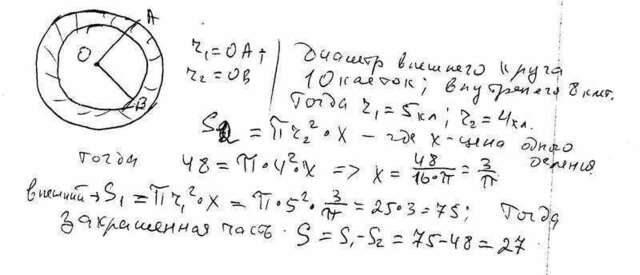 A
O
B
r₁ = OA;
r₂ = OB
Диаметр внешнего круга
10 клеток; внутренего 8 клт.
Тогда r₁ = 5 кл; r₂ = 4 кл.
S₂ = πr₂² · x – где x – цена одного деления
Тогда 48 = π · 4² · x => x = 48/(16·π) = 3/π
внешний → S₁ = πr₁² · x = π · 5² · 3/π = 25 · 3 = 75; Тогда
Закрашенная часть. S = S₁ - S₂ = 75 - 48 = 27.